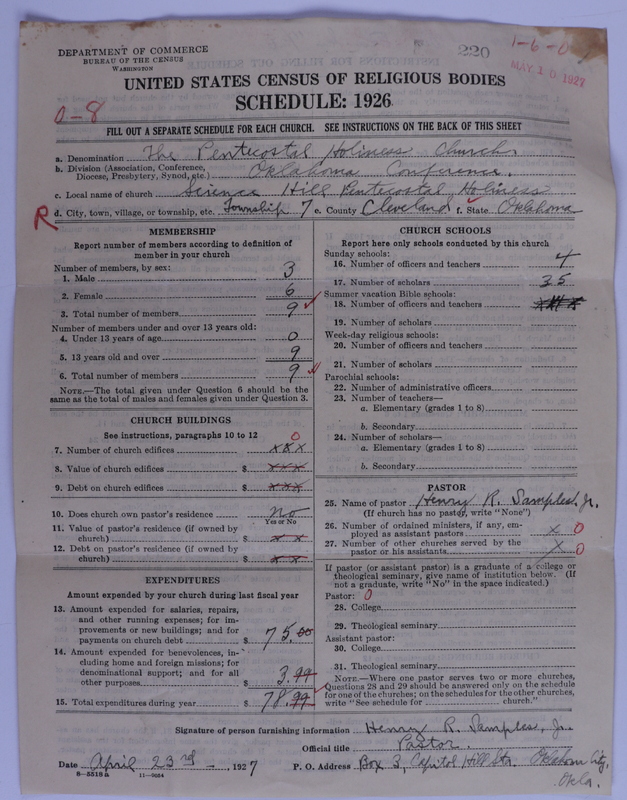 220
1-6-0
MAY 10 1927
DEPARTMENT OF COMMERCE
BUREAU OF THE CENSUS
WASHINGTON
UNITED STATES CENSUS OF RELIGIOUS BODIES
SCHEDULE: 1926
0-8
FILL OUT A SEPARATE SCHEDULE FOR EACH CHURCH. SEE INSTRUCTIONS ON THE BACK OF THIS SHEET
a. Denomination The Pentecostal Holiness Church
b. Division (Association, Conference, Diocese, Presbytery, Synod, etc.) Oklahoma Conference.
c. Local name of church Science Hill Pentecostal Holiness
R d. City, town, village, or township, etc. Township 7 e. County Cleveland f. State Oklahoma
MEMBERSHIP
Report number of members according to definition of
member in your church
Number of members, by sex:
1. Male 3
2. Female 6
3. Total number of members 9
Number of members under and over 13 years old:
4. Under 13 years of age 0
5. 13 years old and over 9
6. Total number of members 9
NOTE.—The total given under Question 6 should be the
same as the total of males and females given under Question 3.
CHURCH BUILDINGS
See instructions, paragraphs 10 to 12 0
7. Number of church edifices xxx
8. Value of church edifices $ xxx
9. Debt on church edifices $ xxx
10. Does church own pastor's residence No
Yes or No
11. Value of pastor's residence (if owned by
church) $ x x
12. Debt on pastor's residence (if owned by
church) $ x x
EXPENDITURES
Amount expended by your church during last fiscal year
13. Amount expended for salaries, repairs,
and other running expenses; for im-
provements or new buildings; and for
payments on church debt $ 75.00
14. Amount expended for benevolences, in-
cluding home and foreign missions; for
denominational support; and for all
other purposes $ 3.99
15. Total expenditures during year $ 78.99
CHURCH SCHOOLS
Report here only schools conducted by this church
Sunday schools:
16. Number of officers and teachers 4
17. Number of scholars 35
Summer vacation Bible schools:
18. Number of officers and teachers
19. Number of scholars
Week-day religious schools:
20. Number of officers and teachers
21. Number of scholars
Parochial schools:
22. Number of administrative officers
23. Number of teachers—
a. Elementary (grades 1 to 8)
b. Secondary
24. Number of scholars—
a. Elementary (grades 1 to 8)
b. Secondary
PASTOR
25. Name of pastor Henry R. Samples, Jr.
(If church has no pastor, write "None")
26. Number of ordained ministers, if any, em-
ployed as assistant pastors x 0
27. Number of other churches served by the
pastor or his assistants x 0
If pastor (or assistant pastor) is a graduate of a college or
theological seminary, give name of institution below. (If
not a graduate, write "No" in the space indicated.)
Pastor: 0
28. College
29. Theological seminary
Assistant pastor:
30. College
31. Theological seminary
NOTE.—Where one pastor serves two or more churches,
Questions 28 and 29 should be answered only on the schedule
for one of the churches; on the schedules for the other churches,
write "See schedule for church."
Signature of person furnishing information Henry R. Samples, Jr.
Official title Pastor.
Date April 23rd, 1927 P. O. Address Box 3, Capitol Hill Sta. Oklahoma City,
Okla.
8-5518a 11-9054